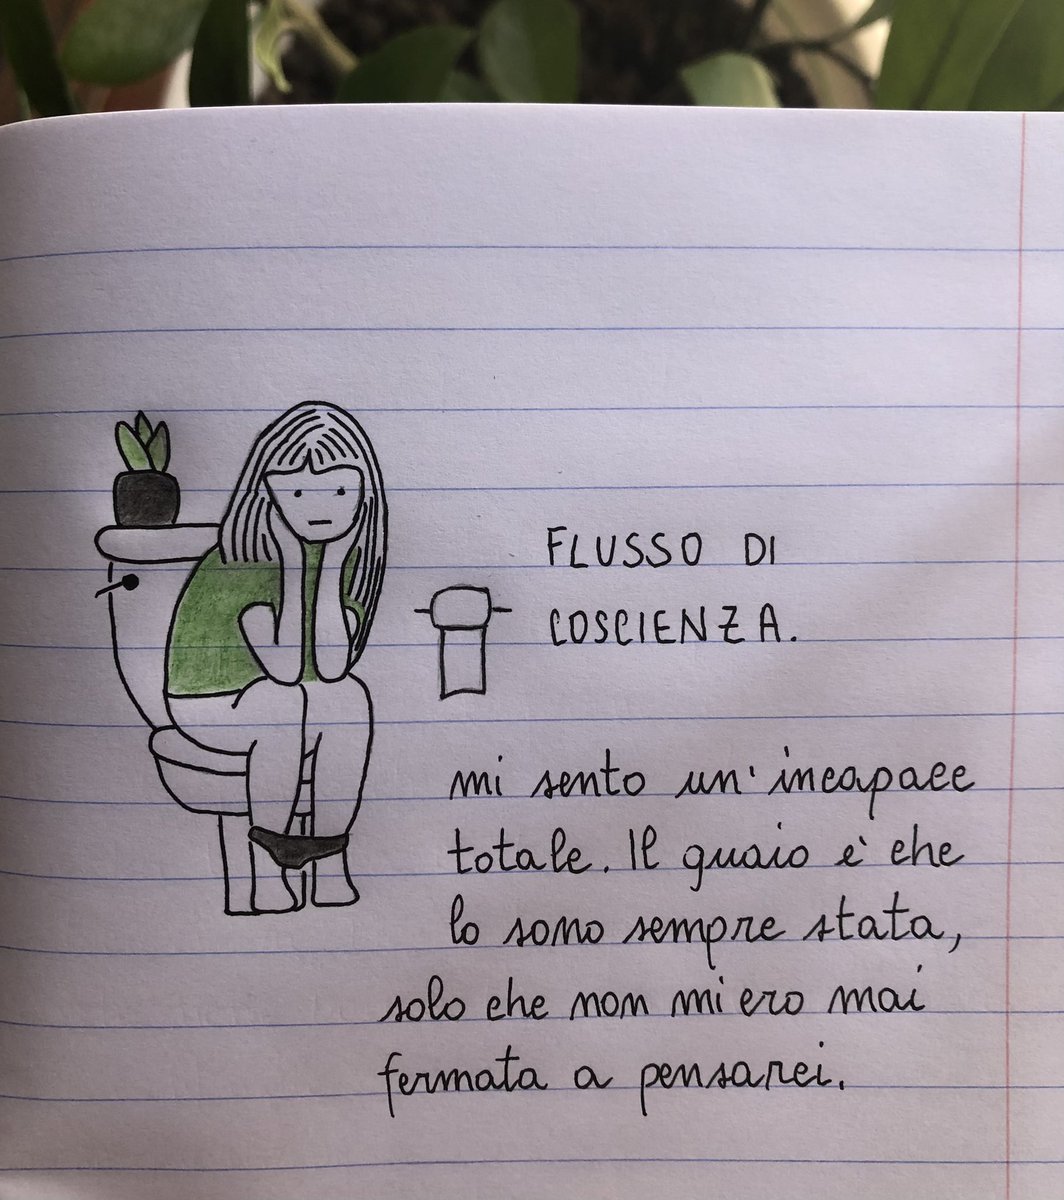 FLUSSO DI
COSCIENZA.
mi sento un' incapace
totale. Il guaio è che
lo sono sempre stata,
solo che non mi ero mai
fermata a pensarci.